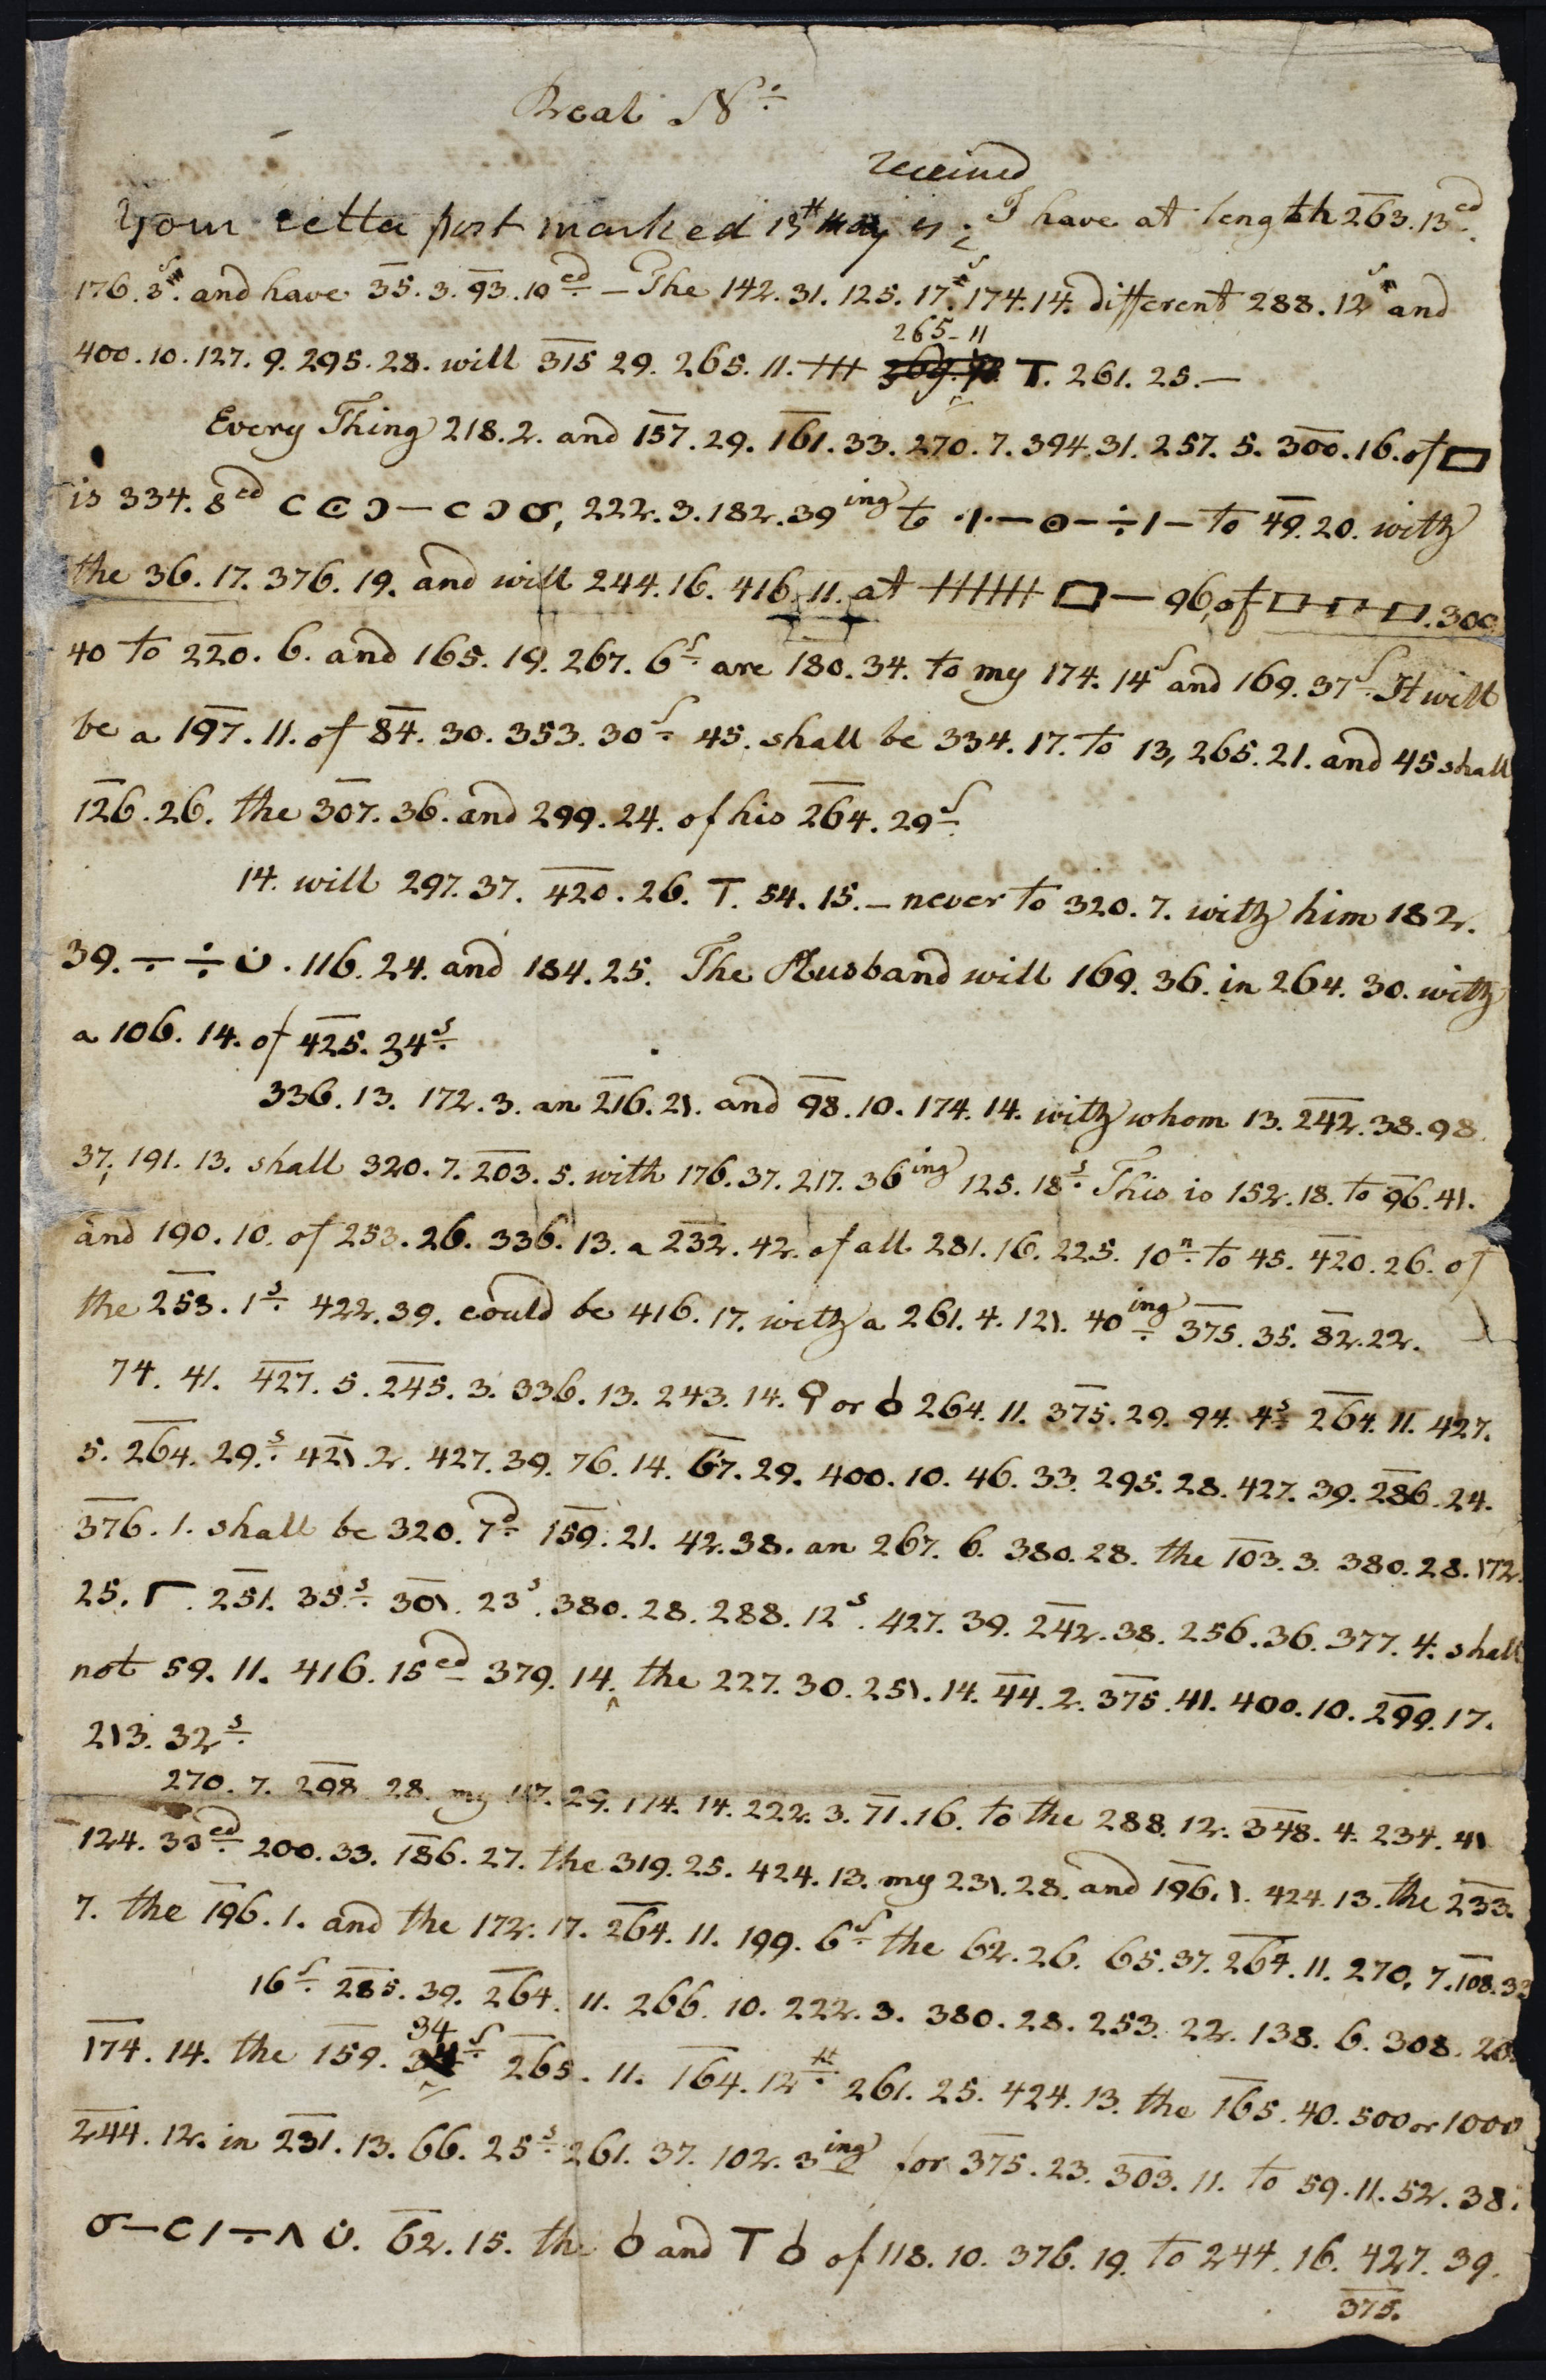 Real No
received
Your letter post marked 13th May is; I have at length 2̅6̅3̅.13ed.
176.3s. and have 3̅5̅.3.9̅3̅.10ed — The 142.31.125.17s.174.14. different 288.12s and
265-11
400.10.127.9.295.28. will 3̅1̅5̅ 29.265.11. T. 261.25.—
Every Thing 218.2. and 1̅5̅7̅.29.1̅6̅1̅.33.270.7.394.31.257.5.3̅0̅0̅.16. of ▭
is 334.8ed C Ͼ Ɔ — C Ɔ σ, 222.3.182.39ing to ·|· — ⊙ — ÷ | — to 4̅9̅.20. with
the 36.17.376.19. and will 244.16.416.11. at ▭ — 96, of ▭ ▭ ▭.300
40 to 2̅2̅0̅.6. and 165.19.267.6s. are 1̅8̅0̅.34. to my 174.14s and 169.37s. It will
be a 1̅9̅7̅.11. of 8̅4̅.30.353.30s. 45. shall be 334.17. to 13, 265.21. and 45 shall
1̅2̅6̅.26. the 3̅0̅7̅.36. and 299.24. of his 2̅6̅4̅.29s.
14. will 297.37.4̅2̅0̅.26. T. 54.15.— never to 320.7. with him 182.
39. ∸ ÷ U̇. 116.24. and 184.25. The Husband will 169.36. in 264.30. with
a 106.14. of 4̅2̅5̅.34s.
336.13.172.3. an 2̅1̅6̅.21. and 9̅8̅.10.174.14. with whom 13.2̅4̅2̅.38.98.
37; 191.13. shall 320.7.2̅0̅3̅.5. with 176.37.217.36ing 125.18s. This is 152.18. to 9̅6̅.41.
and 190.10. of 253.26.336.13. a 2̅3̅2̅.42. of all 281.16.225.10n. to 45.4̅2̅0̅.26. of
the 2̅5̅3̅.1s. 422.39. could be 416.17. with a 261.4.121.40ing. 3̅7̅5̅.35.8̅2̅.22.
74.41.4̅2̅7̅.5.2̅4̅5̅.3.336.13.243.14. ♀ or ♁ 264.11.3̅7̅5̅.29.94.4s 2̅6̅4̅.11.427.
5.2̅6̅4̅.29s. 4̅2̅1̅.2.427.39.76.14.6̅7̅.29.400.10.46.33.295.28.427.39.2̅8̅6̅.24.
3̅7̅6̅.1. shall be 320.7d. 1̅5̅9̅.21.42.38. an 267.6.380.28. the 1̅0̅3̅.3.380.28.172.
25. Γ. 2̅5̅1̅.35s. 3̅0̅1̅.23s.380.28.288.12s.427.39.2̅4̅2̅.38.256.36.377.4. shall
not 59.11.416.15ed 379.14. the 227.30.251.14.4̅4̅.2.3̅7̅5̅.41.400.10.2̅9̅9̅.17.
213.32s.
270.7.2̅9̅8̅.28. my 29.174.14.222.3.7̅1̅.16. to the 288.12.3̅4̅8̅.4.234.41
124.33ed. 200.33.1̅8̅6̅.27. the 319.25.424.13. my 231.28. and 1̅9̅6̅.1.424.13. the 2̅3̅3̅.
7. the 1̅9̅6̅.1. and the 172.17.2̅6̅4̅.11.199.6s. the 62.26.65.37.2̅6̅4̅.11.270.7.1̅0̅8̅.33
16s. 2̅8̅5̅.39.2̅6̅4̅.11.266.10.222.3.380.28.253.22.138.6.308.20.
34
1̅7̅4̅.14. the 1̅5̅9̅. s. 2̅6̅5̅.11.1̅6̅4̅.12tt. 261.25.424.13. the 1̅6̅5̅.40.500 or 1000
2̅4̅4̅.12. in 2̅3̅1̅.13.66.25s. 261.37.102.3ing for 3̅7̅5̅.23.3̅0̅3̅.11. to 59.11.52.38.
σ — C | ∸ Λ U̇. 6̅2̅.15. the ♁ and T ♁ of 118.10.376.19. to 244.16.427.39.
3̅7̅5̅.